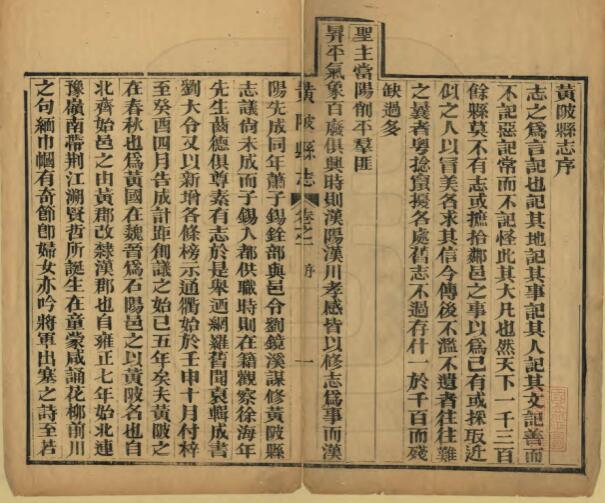 黃陂縣志序
志之爲言記也記其地記其事記其人記其文記善而
不記惡記常而不記怪此其大凡也然天下一千三百
餘縣莫不有志或摭拾鄰邑之事以爲己有或採取近
似之人以冒美名求其信今傳後不濫不遺者往往難
之曩者粵捻竄擾各處舊志不過存什一於千百而殘
缺過多
聖主當陽削平羣匪
昇平氣象百廢俱興時則漢陽漢川孝感皆以修志爲事而漢
黃陂縣志 卷之一 序 一
陽先成同年蕭子錫銓部與邑令劉鏡溪謀修黃陂縣
志議尚未成而子錫入都供職時則在籍觀察徐海年
先生齒德俱尊素有志於是舉迺網羅舊聞裒輯成書
劉大令又以新增各條榜示通衢始於壬申十月付梓
至癸酉四月告成計距創議之始已五年矣夫黃陂之
在春秋也爲黃國在魏晉爲石陽邑之以黃陂名也自
北齊始邑之由黃郡改隸漢郡也自雍正七年始北連
豫嶺南帶荆江溯賢哲所誕生在童蒙咸誦花柳前川
之句緬巾幗有奇節卽婦女亦吟將軍出塞之詩至若